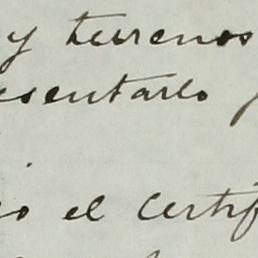 y terrenos
esentarlo
io el Certif